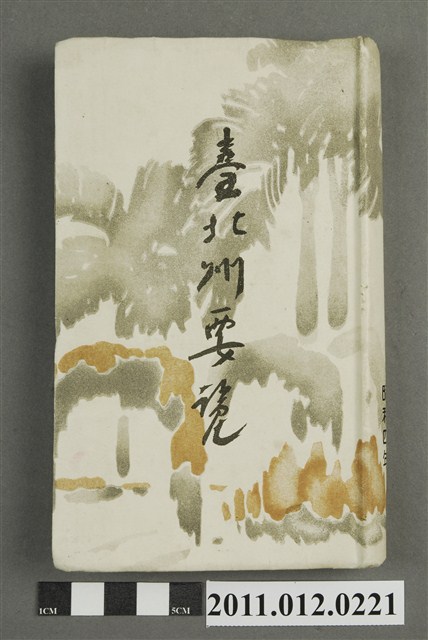 臺北州要覽
昭和四年
1CM
5CM
2011.012.0221